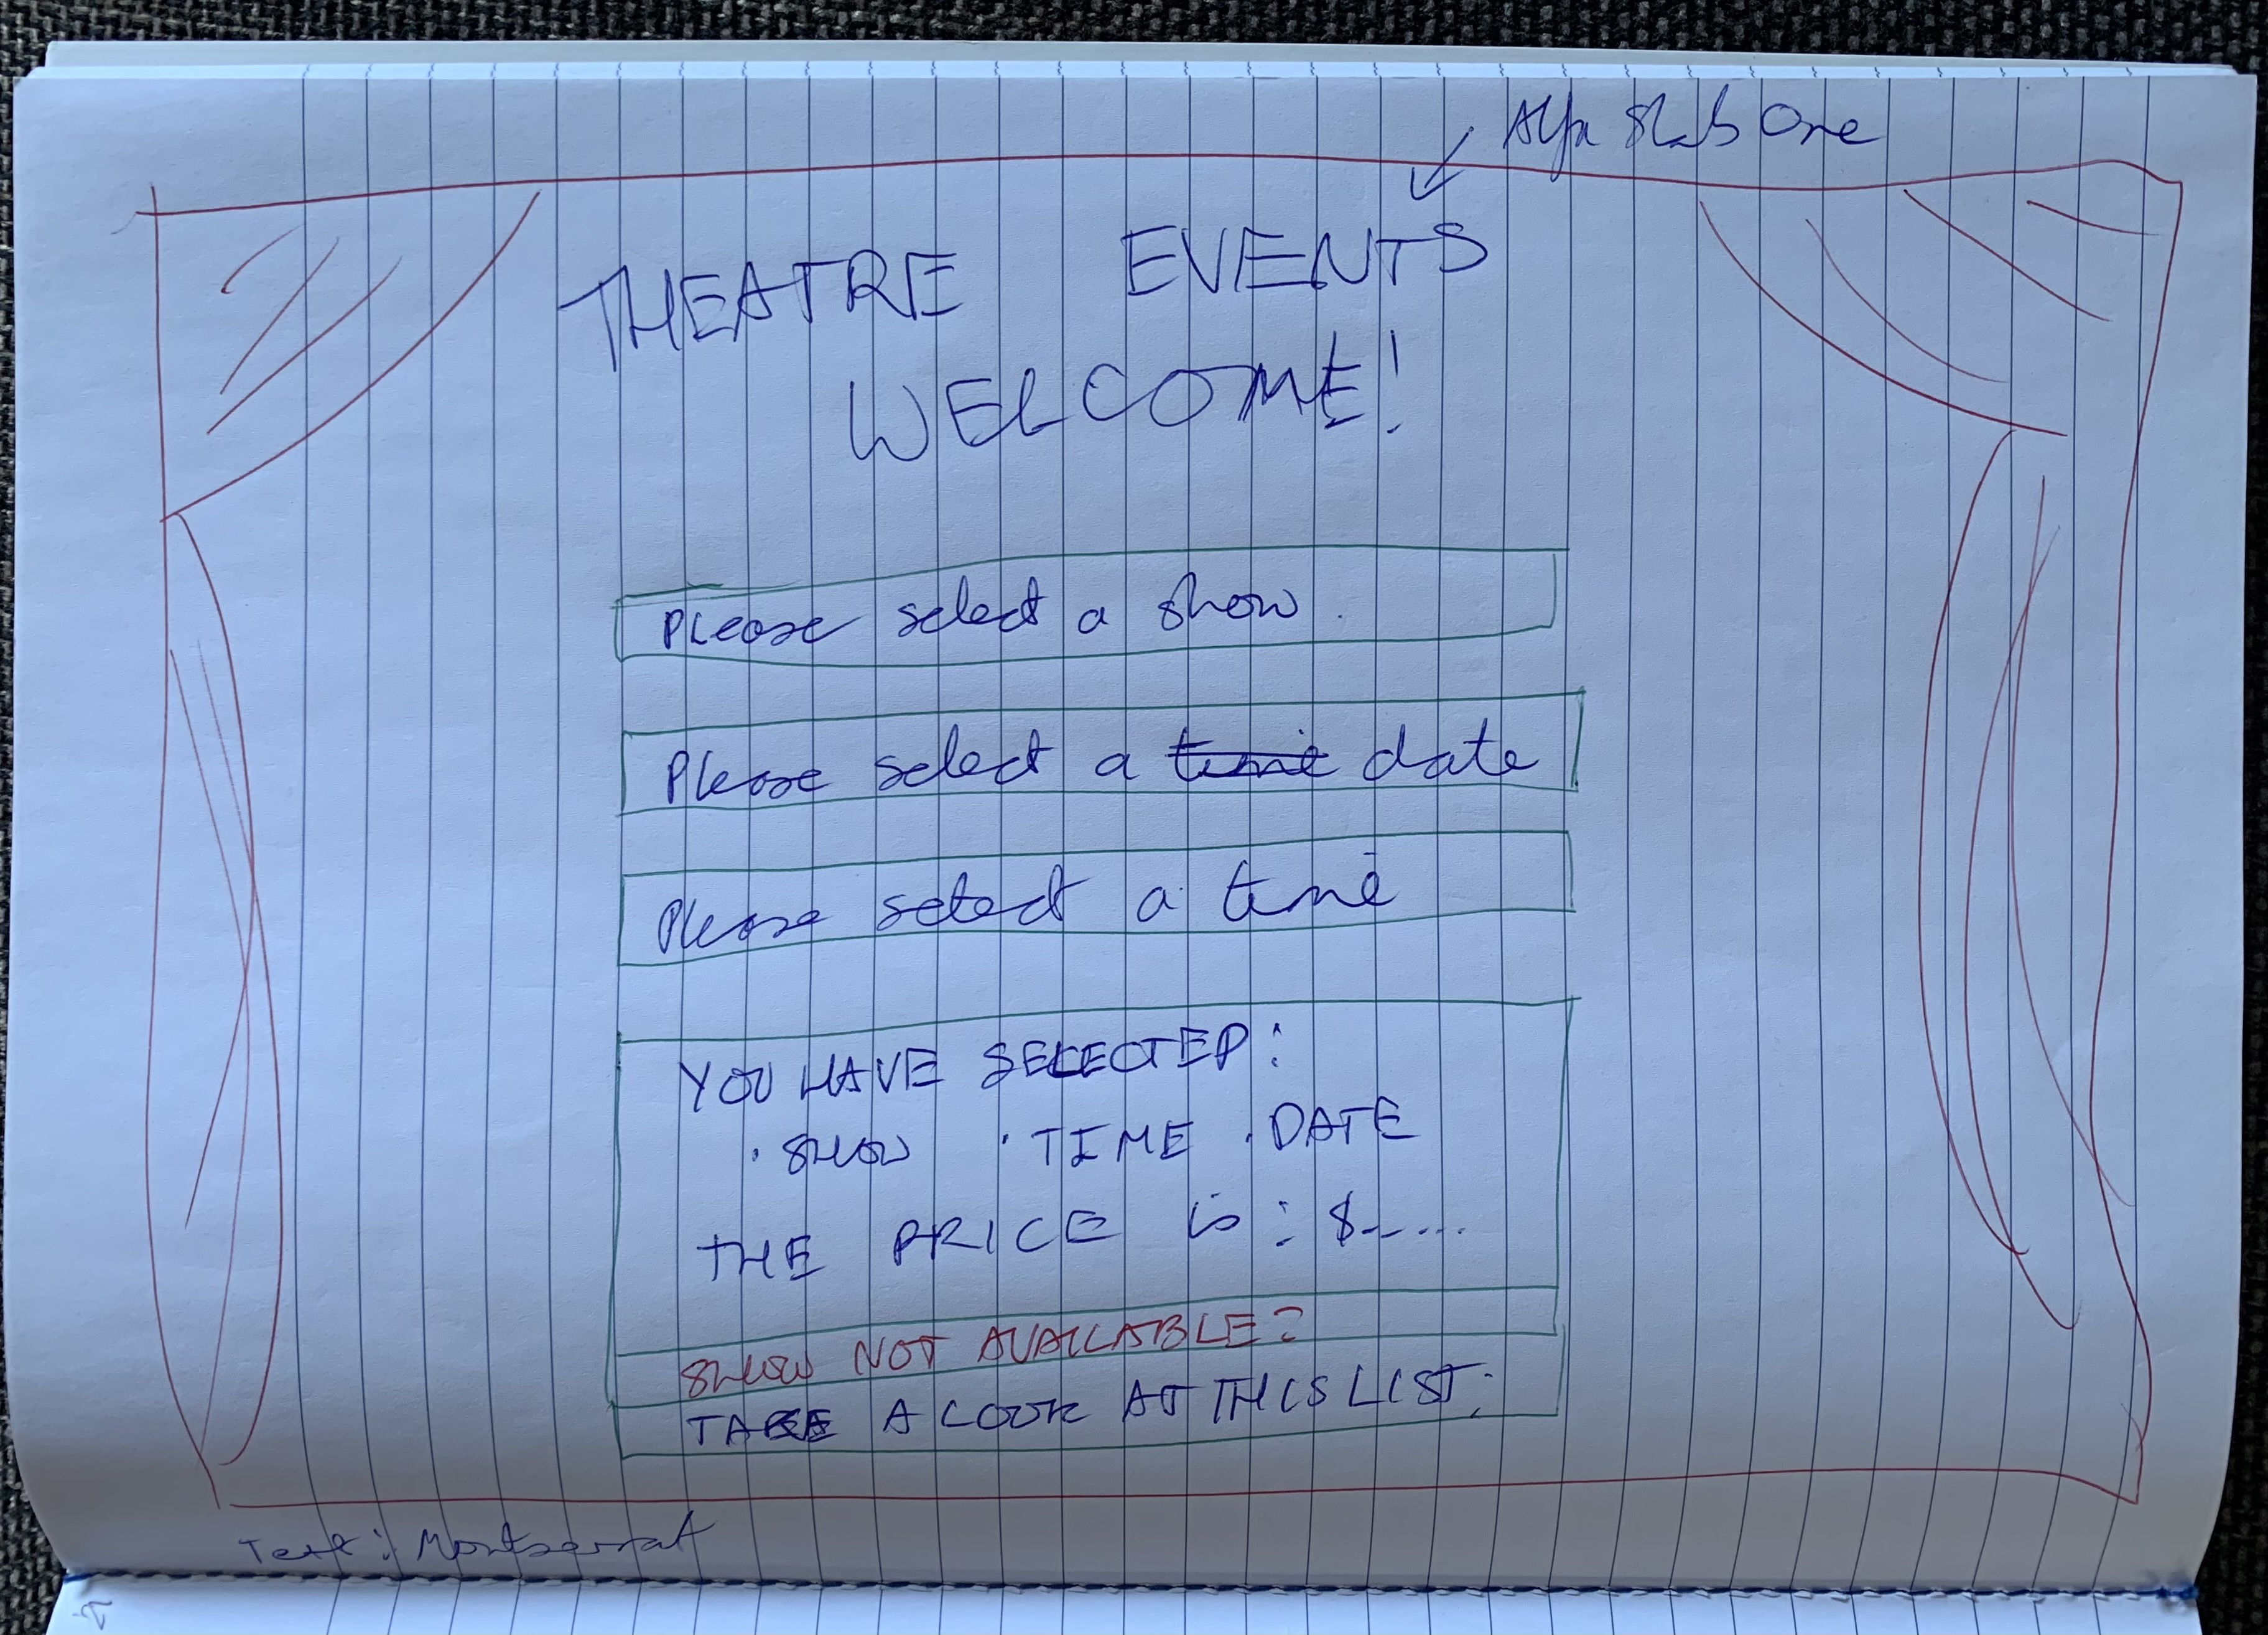 Alfa Slab One
THEATRE EVENTS
WELCOME!
Please select a show.
Please select a time date
Please select a time
YOU HAVE SELECTED:
· SHOW · TIME · DATE
THE PRICE is : $-....
SHOW NOT AVAILABLE?
TAKE A LOOK AT THIS LIST:
Text: Montserrat